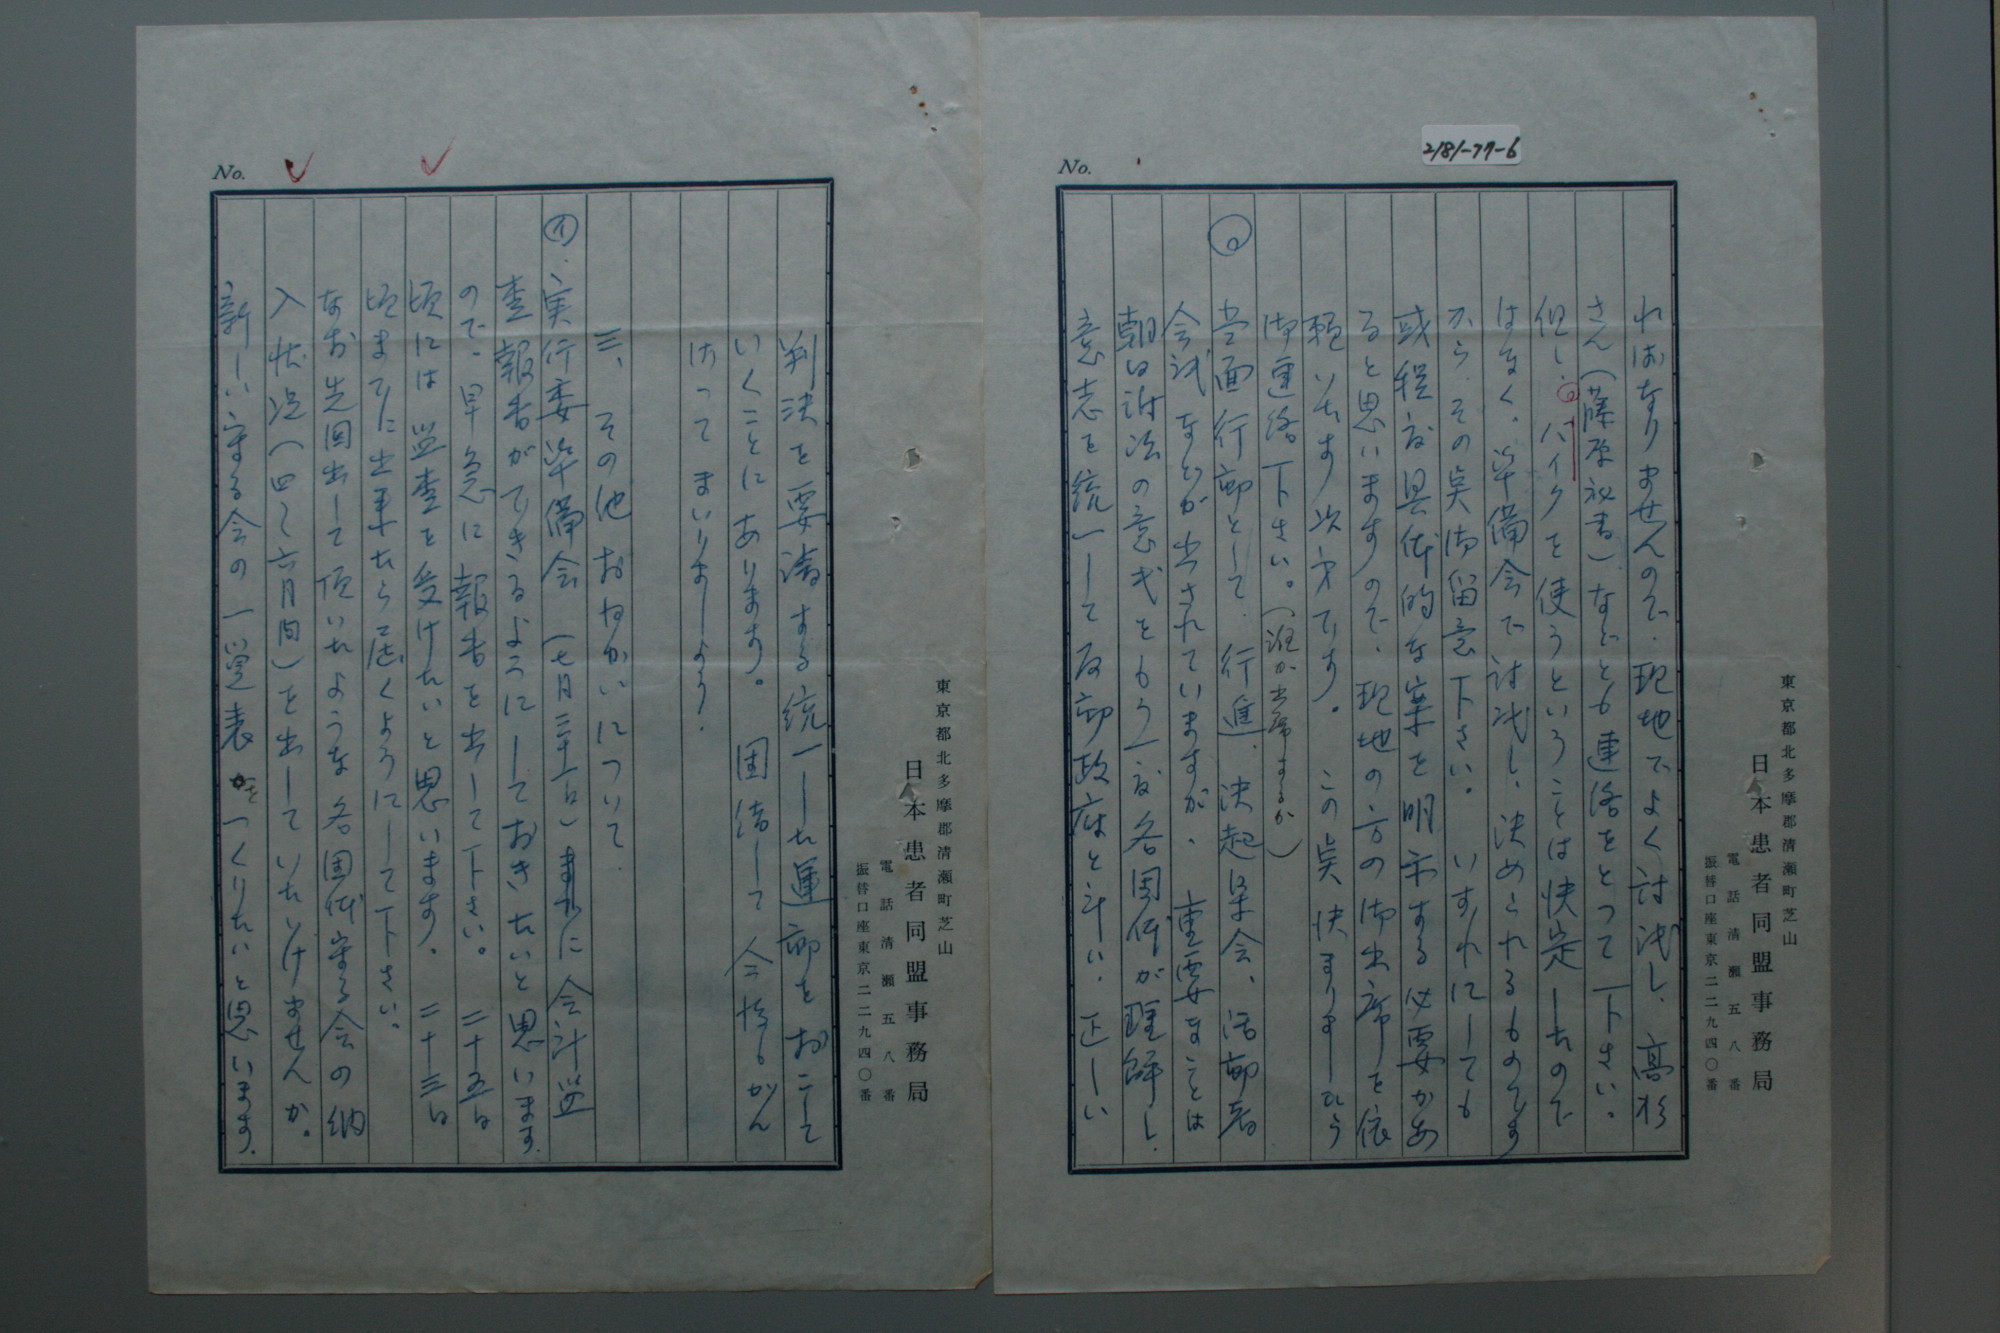 2181-77-6
No.
東京都北多摩郡清瀬町芝山
日本患者同盟事務局
電話清瀬五八番
振替口座東京二二九四〇番
ればなりませんので、現地でよく討議し、高杉
さん(藤原秘書)などとも連絡をとって下さい。
但し、バイクを使うということは決定したので
はなく、準備会で討議し、決められるものです
から、その点御留意下さい。いずれにしても
或程度具体的な案を明示する必要があ
ると思いますので、現地の方の御出席を依
頼いたす次第です。この点決まりましたら
御連絡下さい。(誰が出席するか)
㋺ 当面行動として、行進、決起集会、活動者
会議などが出されていますが、重要なことは
朝日訴訟の意義をもう一度各団体が理解し、
意志を統一して反動政府と斗い、正しい
No.
東京都北多摩郡清瀬町芝山
日本患者同盟事務局
電話清瀬五八番
振替口座東京二二九四〇番
判決を要請する統一した運動をおこして
いくことにあります。団結して今一度がん
ばってまいりましょう。
三、その他おねがいについて
㋑、実行委準備会(七月三十一日)までに会計監
査報告ができるようにしておきたいと思います
ので、早急に報告を出して下さい。二十五日
頃には監査を受けたいと思います。二十三日
頃までに出来たら届くようにして下さい。
なお先回出して頂いたような各団体守る会の納
入状況(四〜六月間)を出していただけませんか。
新しい守る会の一覧表をつくりたいと思います。